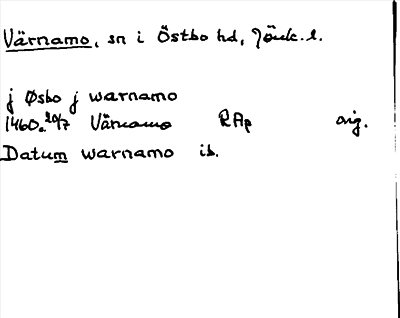 Värnamo, sn i Östbo hd, Jönk. l.
j Øsbo j warnamo
1460 20/7 Värnamo RAp orig.
Datum warnamo ib.